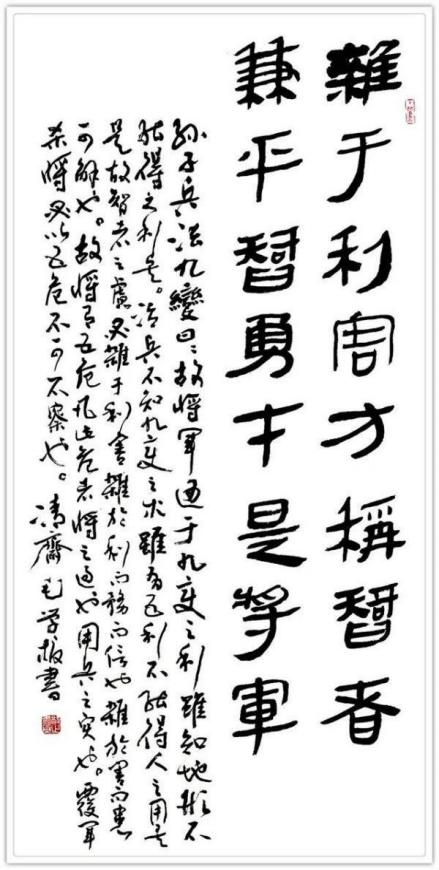 雜于利害方稱智者
兼乎智勇才是將軍
孙子兵法九變曰：故將軍通于九变之利雖知地形不
能得之利矣。治兵不知九变之术雖知五利不能得人之用矣
是故智者之慮必雜于利害雜於利而務而信也雜於害而患
可解也。故將有五危凡此危者將之過也用兵之災也。覆軍
杀將必以五危不可不察也。清齋毛学板書